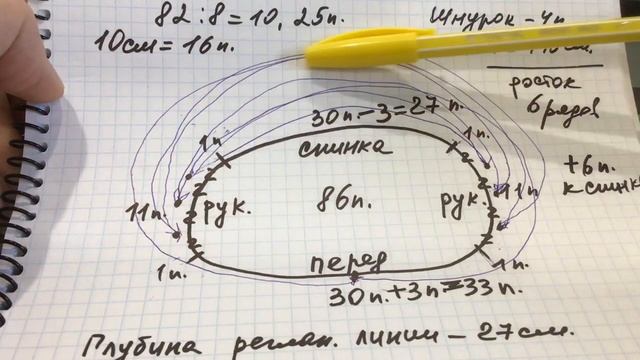 82:8=10,25п.
Шнурок - 4п
10см=16п.
росток
6 рядов
30п.-3=27п.
1п. 1п.
спинка
+6п.
к спинк
11п. рук. 86п. рук. 11п.
перед
1п. 1п.
30п.+3п=33п.
Глубина реглан. линии - 27см.